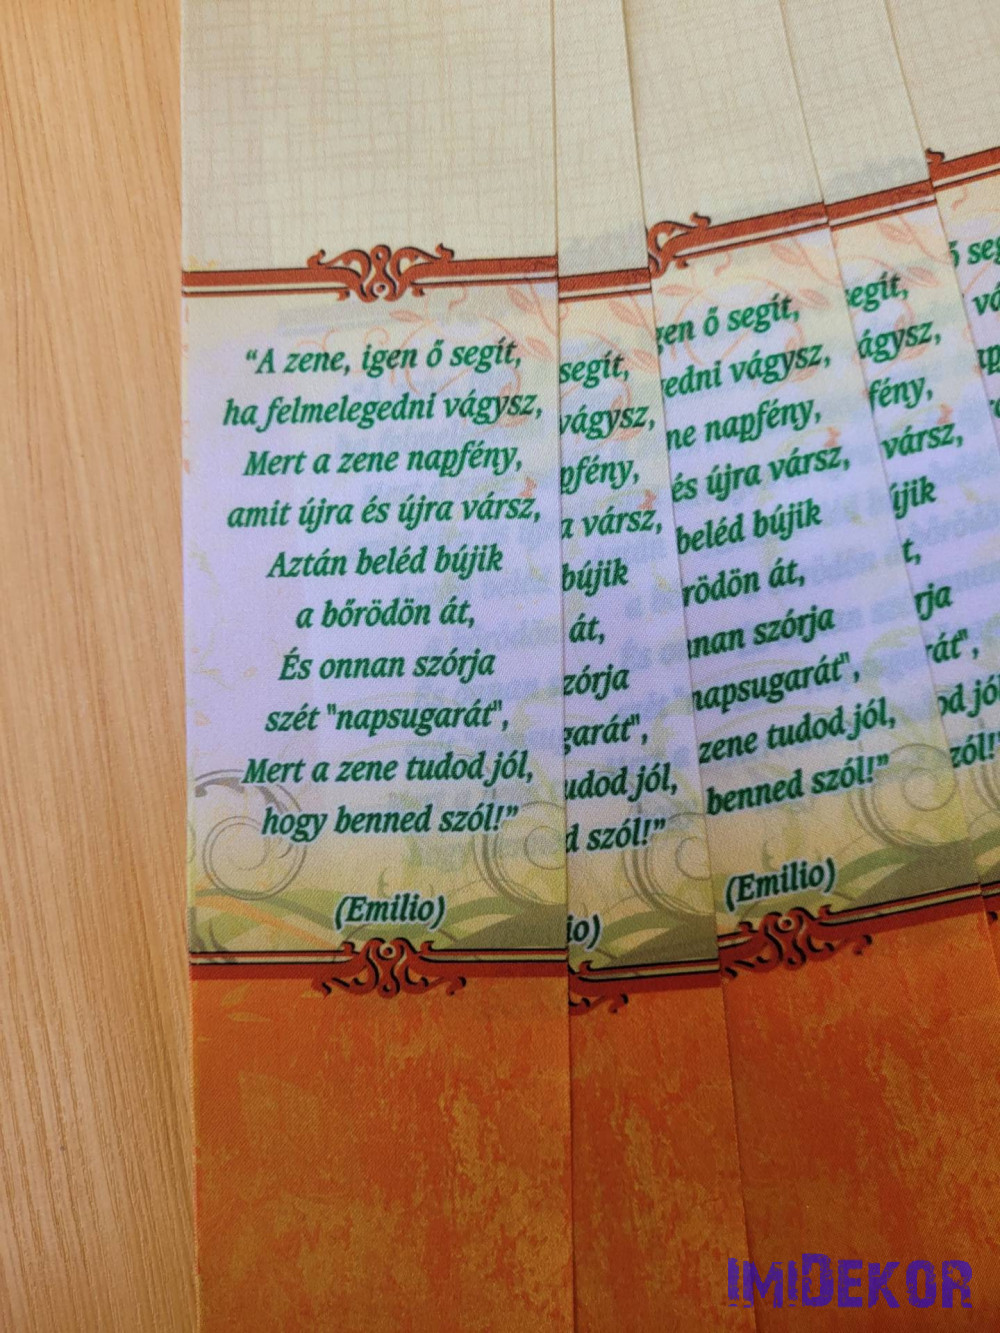 “A zene, igen ő segít,
ha felmelegedni vágysz,
Mert a zene napfény,
amit újra és újra vársz,
Aztán beléd bújik
a bőrödön át,
És onnan szórja
szét "napsugarát",
Mert a zene tudod jól,
hogy benned szól!”
(Emilio)
segít,
vágysz,
pfény,
a vársz,
bújik
át,
zórja
garát",
udod jól,
d szól!”
io)
gen ő segít,
edni vágysz,
ne napfény,
és újra vársz,
beléd bújik
rödön át,
nnan szórja
napsugarát",
zene tudod jól,
benned szól!”
(Emilio)
egít,
ágysz,
fény,
vársz,
újik
t,
rja
rát",
od jól
zól!”
ő seg
vá
IMIDEKOR